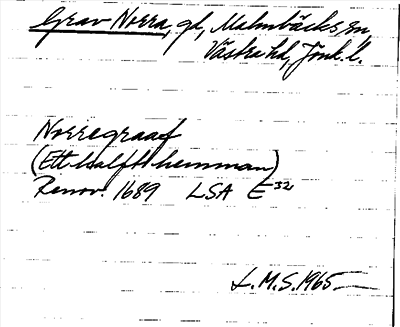 Grav Norra, gd, Malmbäcks sn
Västra hd, Jönk. l.
Norregraaf
(Ett halfft hemman)
Renov. 1689 LSA E32
L.M.S. 1965